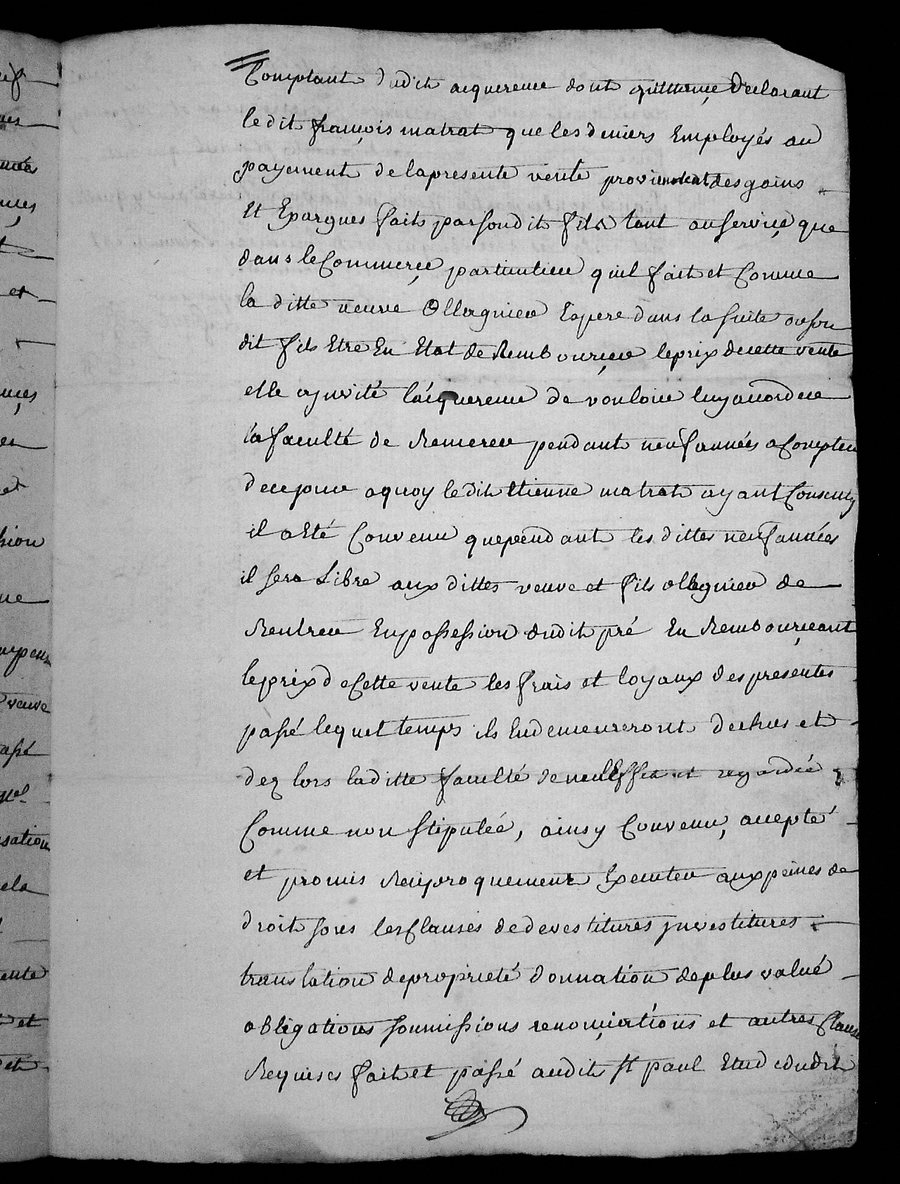 Comptant dudit acquereur dont quittance Declarant
ledit françois matrat que les deniers Employés au
payement de la presente vente proviennent des gains
Et Epargnes faits par son dit fils tant au service que
dans le Commerçe particulier quil fait et Comme
la ditte veuve Ollagnier Espere dans la suite ou son
dit fils Etre En Etat de Rembourçer le prix de cette vente
elle a jnvité lacquereur de vouloir luy accorder
la faculté de Remerer pendant neuf années a Compter
de ce jour a quoy ledit Etienne matrat ayant Consenty
il a Eté Convenu que pendant les dittes neuf années
il sera Libre aux dittes veuve et fils ollagnier de
Rentrer En possession dudit pré En Rembourçeant
le prix de Cette vente les frais et loyaux des presentes
passé lequel temps ils En demeureront dechus et
dez lors laditte faculté de nul Effet et regardée
Comme non Stipulée, ainsy Convenu, accepté
et promis Reciproquement Executer aux peines de
droit sous les Clauses de devestitures jnvestitures
translation de proprieté donnation de plus valué
obligations soumissions renonçiations et autres Clauses
Requises fait et passé audit St paul Etude dudit